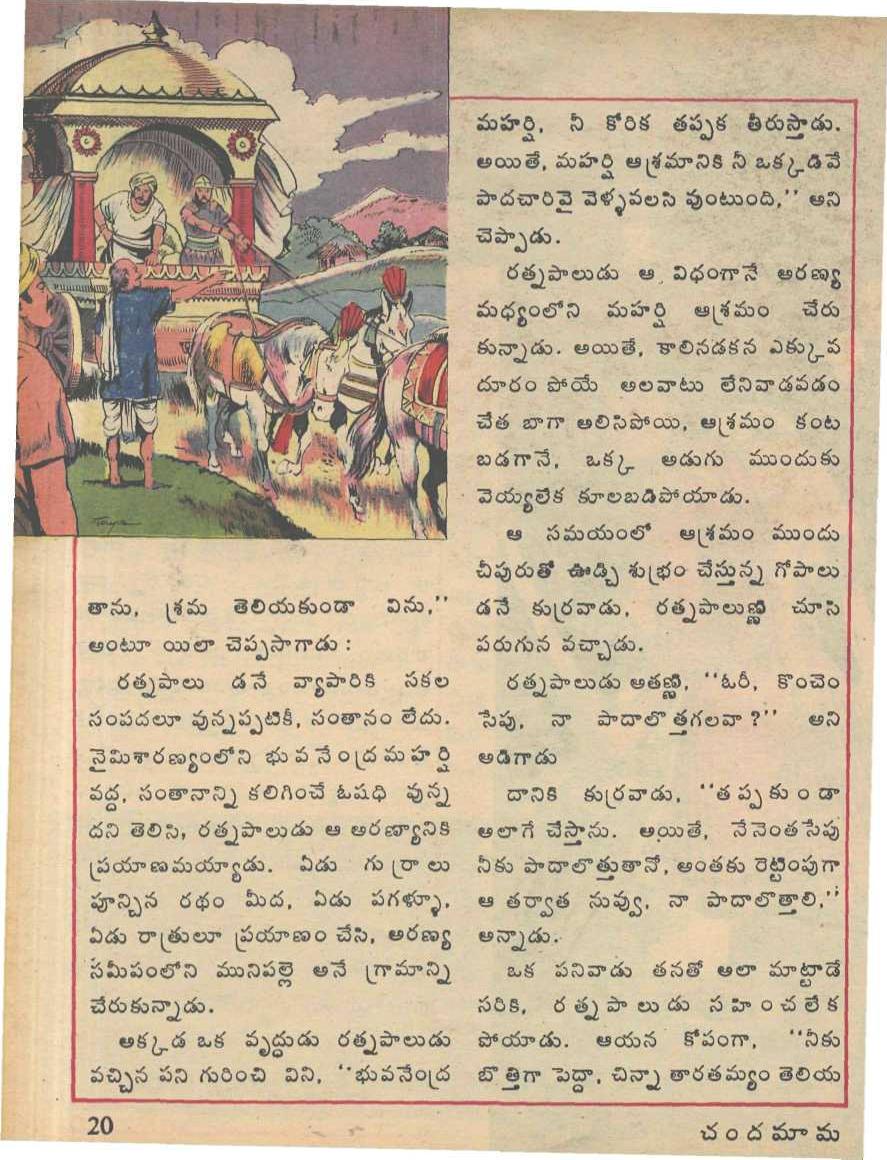 తాను, శ్రమ తెలియకుండా విను,''
అంటూ యిలా చెప్పసాగాడు :
రత్నపాలు డనే వ్యాపారికి సకల
సంపదలూ వున్నప్పటికీ, సంతానం లేదు.
నైమిశారణ్యంలోని భువనేంద్రమహర్షి
వద్ద, సంతానాన్ని కలిగించే ఓషధి వున్న
దని తెలిసి, రత్నపాలుడు ఆ అరణ్యానికి
ప్రయాణమయ్యాడు. ఏడు గుర్రాలు
పూన్చిన రథం మీద, ఏడు పగళ్ళూ,
ఏడు రాత్రులూ ప్రయాణం చేసి, అరణ్య
సమీపంలోని మునిపల్లె అనే గ్రామాన్ని
చేరుకున్నాడు.
అక్కడ ఒక వృద్ధుడు రత్నపాలుడు
వచ్చిన పని గురించి విని, ''భువనేంద్ర
మహర్షి, నీ కోరిక తప్పక తీరుస్తాడు.
అయితే, మహర్షి ఆశ్రమానికి నీ ఒక్కడివే
పాదచారివై వెళ్ళవలసి వుంటుంది,'' అని
చెప్పాడు.
రత్నపాలుడు ఆ విధంగానే అరణ్య
మధ్యంలోని మహర్షి ఆశ్రమం చేరు
కున్నాడు. అయితే, కాలినడకన ఎక్కువ
దూరం పోయే అలవాటు లేనివాడవడం
చేత బాగా అలిసిపోయి, ఆశ్రమం కంట
బడగానే, ఒక్క అడుగు ముందుకు
వెయ్యలేక కూలబడిపోయాడు.
ఆ సమయంలో ఆశ్రమం ముందు
చీపురుతో ఊడ్చి శుభ్రం చేస్తున్న గోపాలు
డనే కుర్రవాడు, రత్నపాలుణ్ణి చూసి
పరుగున వచ్చాడు.
రత్నపాలుడు అతణ్ణి, ''ఓరీ, కొంచెం
సేపు, నా పాదాలొత్తగలవా ?'' అని
అడిగాడు
దానికి కుర్రవాడు, ''తప్పకుండా
అలాగే చేస్తాను. అయితే, నేనెంతసేపు
నీకు పాదాలొత్తుతానో, అంతకు రెట్టింపుగా
ఆ తర్వాత నువ్వు, నా పాదాలొత్తాలి,''
అన్నాడు.
ఒక పనివాడు తనతో అలా మాట్టాడే
సరికి, రత్నపాలుడు సహించలేక
పోయాడు. ఆయన కోపంగా, ''నీకు
బొత్తిగా పెద్దా, చిన్నా తారతమ్యం తెలియ
20
చందమామ